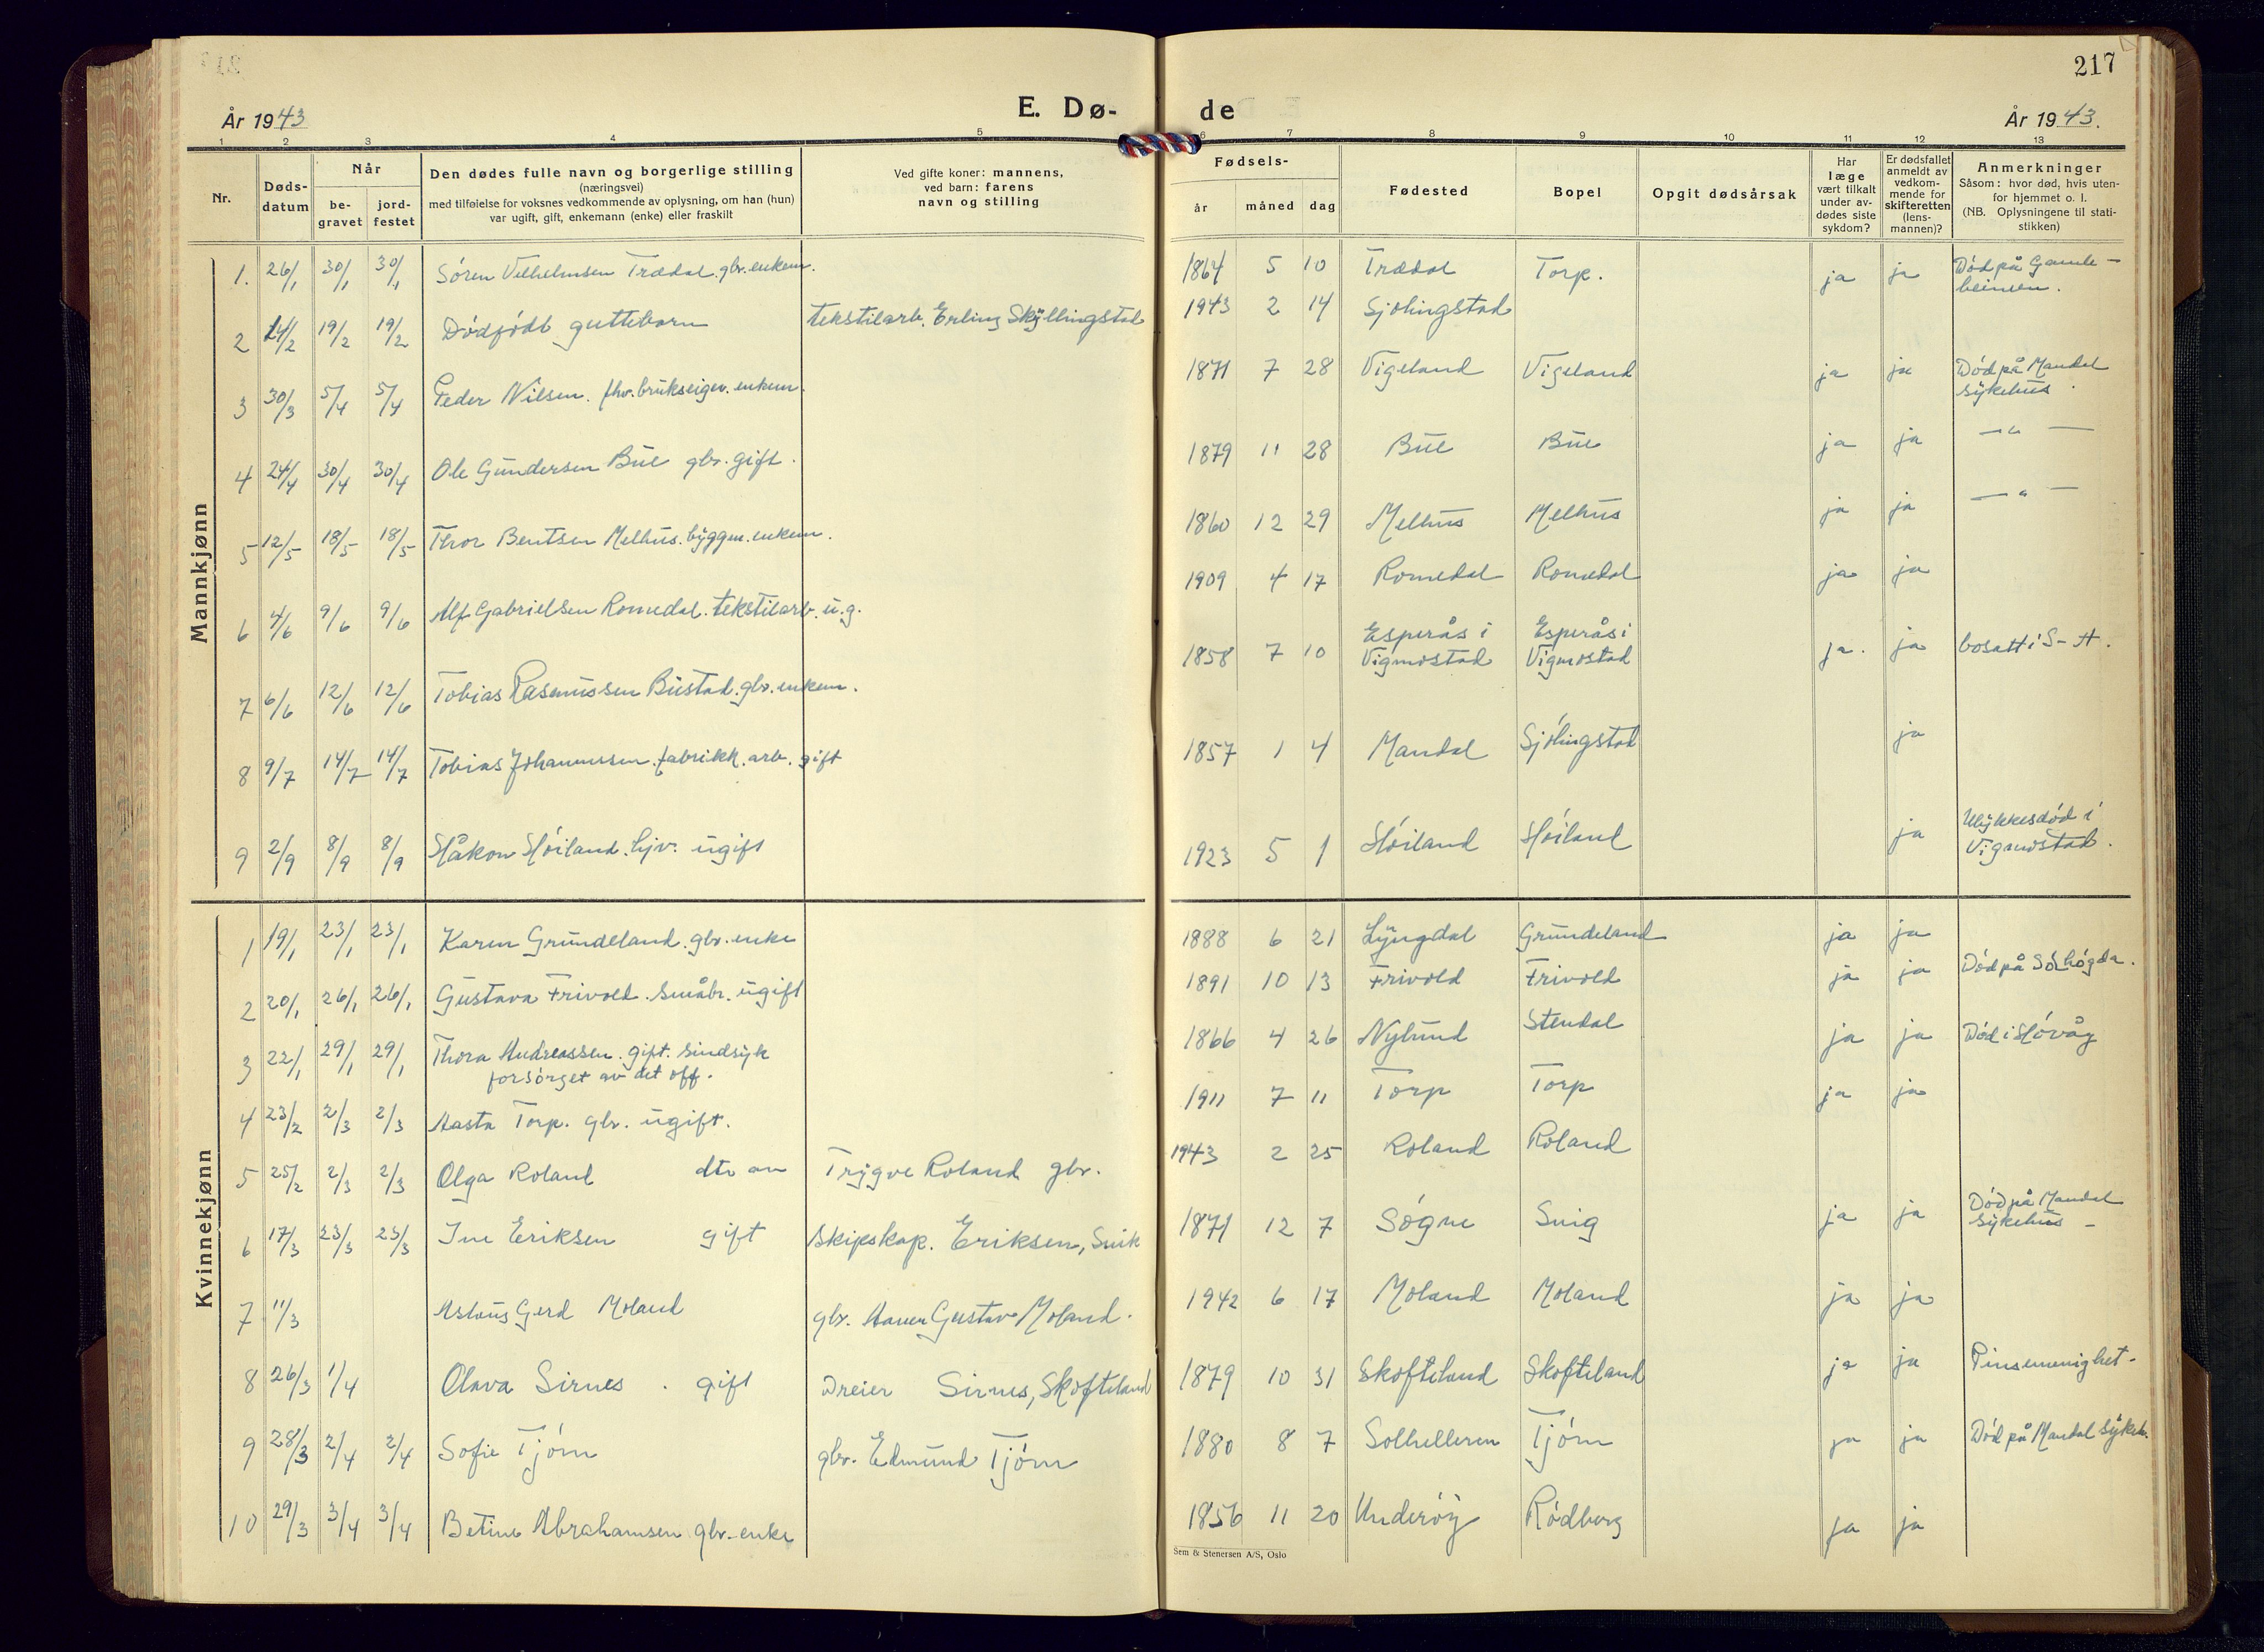 217
År 1943
E. Dø-
de
År 1943.
1 2 3 4 5 6 7 8 9 10 11 12 13
Nr.
Døds-
datum
Når
be-
gravet
jord-
festet
Den dødes fulle navn og borgerlige stilling
(næringsvei)
med tilføielse for voksnes vedkommende av oplysning, om han (hun)
var ugift, gift, enkemann (enke) eller fraskilt
Ved gifte koner: mannens,
ved barn: farens
navn og stilling
Fødsels-
år måned dag
Fødested
Bopel
Opgit dødsårsak
Har
læge
vært tilkalt
under av-
dødes siste
sykdom?
Er dødsfallet
anmeldt av
vedkom-
mende for
skifteretten
(lens-
mannen)?
Anmerkninger
Såsom: hvor død, hvis uten-
for hjemmet o. l.
(NB. Oplysningene til stati-
stikken)
Mannkjønn
1. 26/1 30/1 30/1 Sören Vilhelmsen Trædal. gbr. enkem. 1864 5 10 Trædal Torp. ja ja Död på Gamle-
heimen.
2 14/2 19/2 19/2 Dödfödt guttebarn tekstilarb. Erling Skyllingstad 1943 2 14 Sjölingstad
3 30/3 5/4 5/4 Peder Nilsen. fhv. brukseiger. enkem. 1871 7 28 Vigeland Vigeland ja ja Död på Mandal
sykehus.
4 24/4 30/4 30/4 Ole Gundersen Bue gbr. gift. 1879 11 28 Bue Bue ja ja — " —
5 12/5 18/5 18/5 Thor Bentsen Melhus. byggm. enkem. 1860 12 29 Melhus Melhus ja ja — " —
6 4/6 9/6 9/6 Alf Gabrielsen Romedal. tekstilarb. u.g. 1909 4 17 Romedal Romedal ja ja
7 6/6 12/6 12/6 Tobias Rasmussen Bustad. gbr. enkem. 1858 7 10 Esperås i
Vigmostad Esperås i
Vigmostad ja. ja bosatt i S-A.
8 9/7 14/7 14/7 Tobias Johannessen. fabrikk. arb. gift 1857 1 4 Mandal Sjölingstad ja
9 2/9 8/9 8/9 Håkon Höiland. hjv. ugift 1923 5 1 Höiland Höiland ja Ulykkesdöd i
Vigmostad.
Kvinnekjønn
1 19/1 23/1 23/1 Karen Grundeland. gbr. enke 1888 6 21 Lyngdal Grundeland ja ja
2 20/1 26/1 26/1 Gustava Frivold. småbr. ugift 1891 10 13 Frivold Frivold ja ja Död på Solhögda.
3 22/1 29/1 29/1 Thora Andreassen. gift. sindsyk
forsörget av det off. 1866 4 26 Nylund Stendal ja ja Död i Hövåg
4 23/2 2/3 2/3 Aasta Torp. gbr. ugift. 1911 7 11 Torp Torp ja ja
5 25/2 2/3 2/3 Olga Roland dtr av Trygve Roland gbr. 1943 2 25 Roland Roland
6 17/3 23/3 23/3 Ine Eriksen gift Skipskap. Eriksen, Snik 1871 12 7 Sögne Snig ja ja Död på Mandal
sykehus –
7 11/3 Aslaug Gerd Moland gbr. Gustav Moland. 1942 6 17 Moland Moland ja ja
8 26/3 1/4 Olava Sirnes. gift Dreier Sirnes, Skofteland 1879 10 31 Skofteland Skofteland ja ja Pinsemenighet.
9 28/3 2/4 2/4 Sofie Tjörn gbr. Edmund Tjörn 1880 8 7 Solhelleren Tjörn ja ja Död på Mandal Sykeh.
10 29/3 3/4 3/4 Betine Abrahamsen gbr. enke 1856 11 20 Underöy Rödberg ja ja
Sem & Stenersen A/S, Oslo